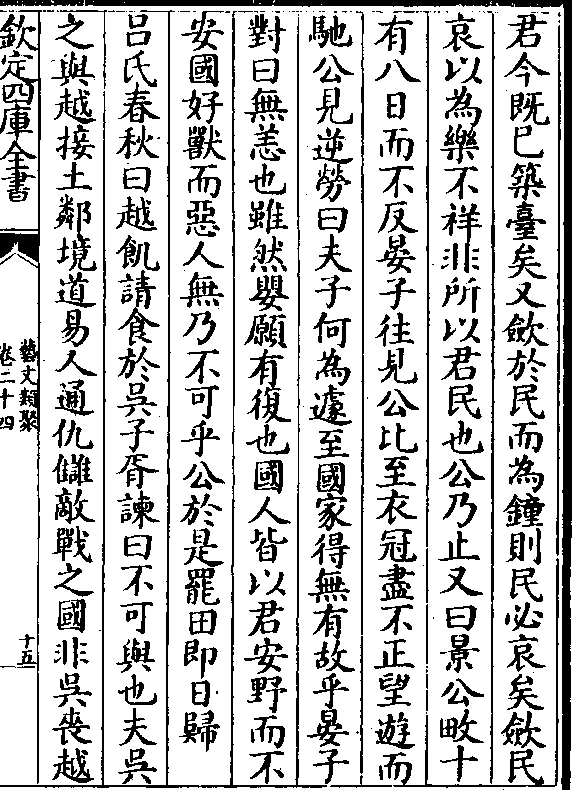 君今既已築臺矣又歛於民而為鐘則民必哀矣歛民
哀以為樂不祥非所以君民也公乃止又曰景公畋十
有八日而不反晏子往見公比至衣冠盡不正望遊而
馳公見逆勞曰夫子何為遽至國家得無有故乎晏子
對曰無恙也雖然嬰願有復也國人皆以君安野而不
安國好獸而惡人無乃不可乎公於是罷田即日歸
吕氏春秋曰越飢請食於吳子胥諫曰不可與也夫吳
之與越接土鄰境道易人通仇讎敵戰之國非吳喪越
欽定四庫全書
藝文類聚
卷二十四
十五